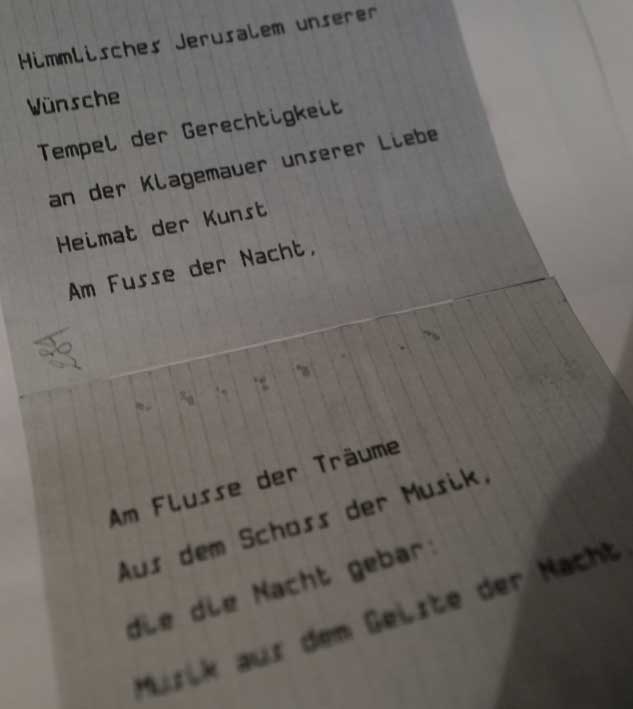 Himmlisches Jerusalem unserer
Wünsche
Tempel der Gerechtigkeit
an der Klagemauer unserer Liebe
Heimat der Kunst
Am Fusse der Nacht.
Am Flusse der Träume
Aus dem Schoss der Musik,
die die Nacht gebar:
Musik aus dem Geiste der Nacht